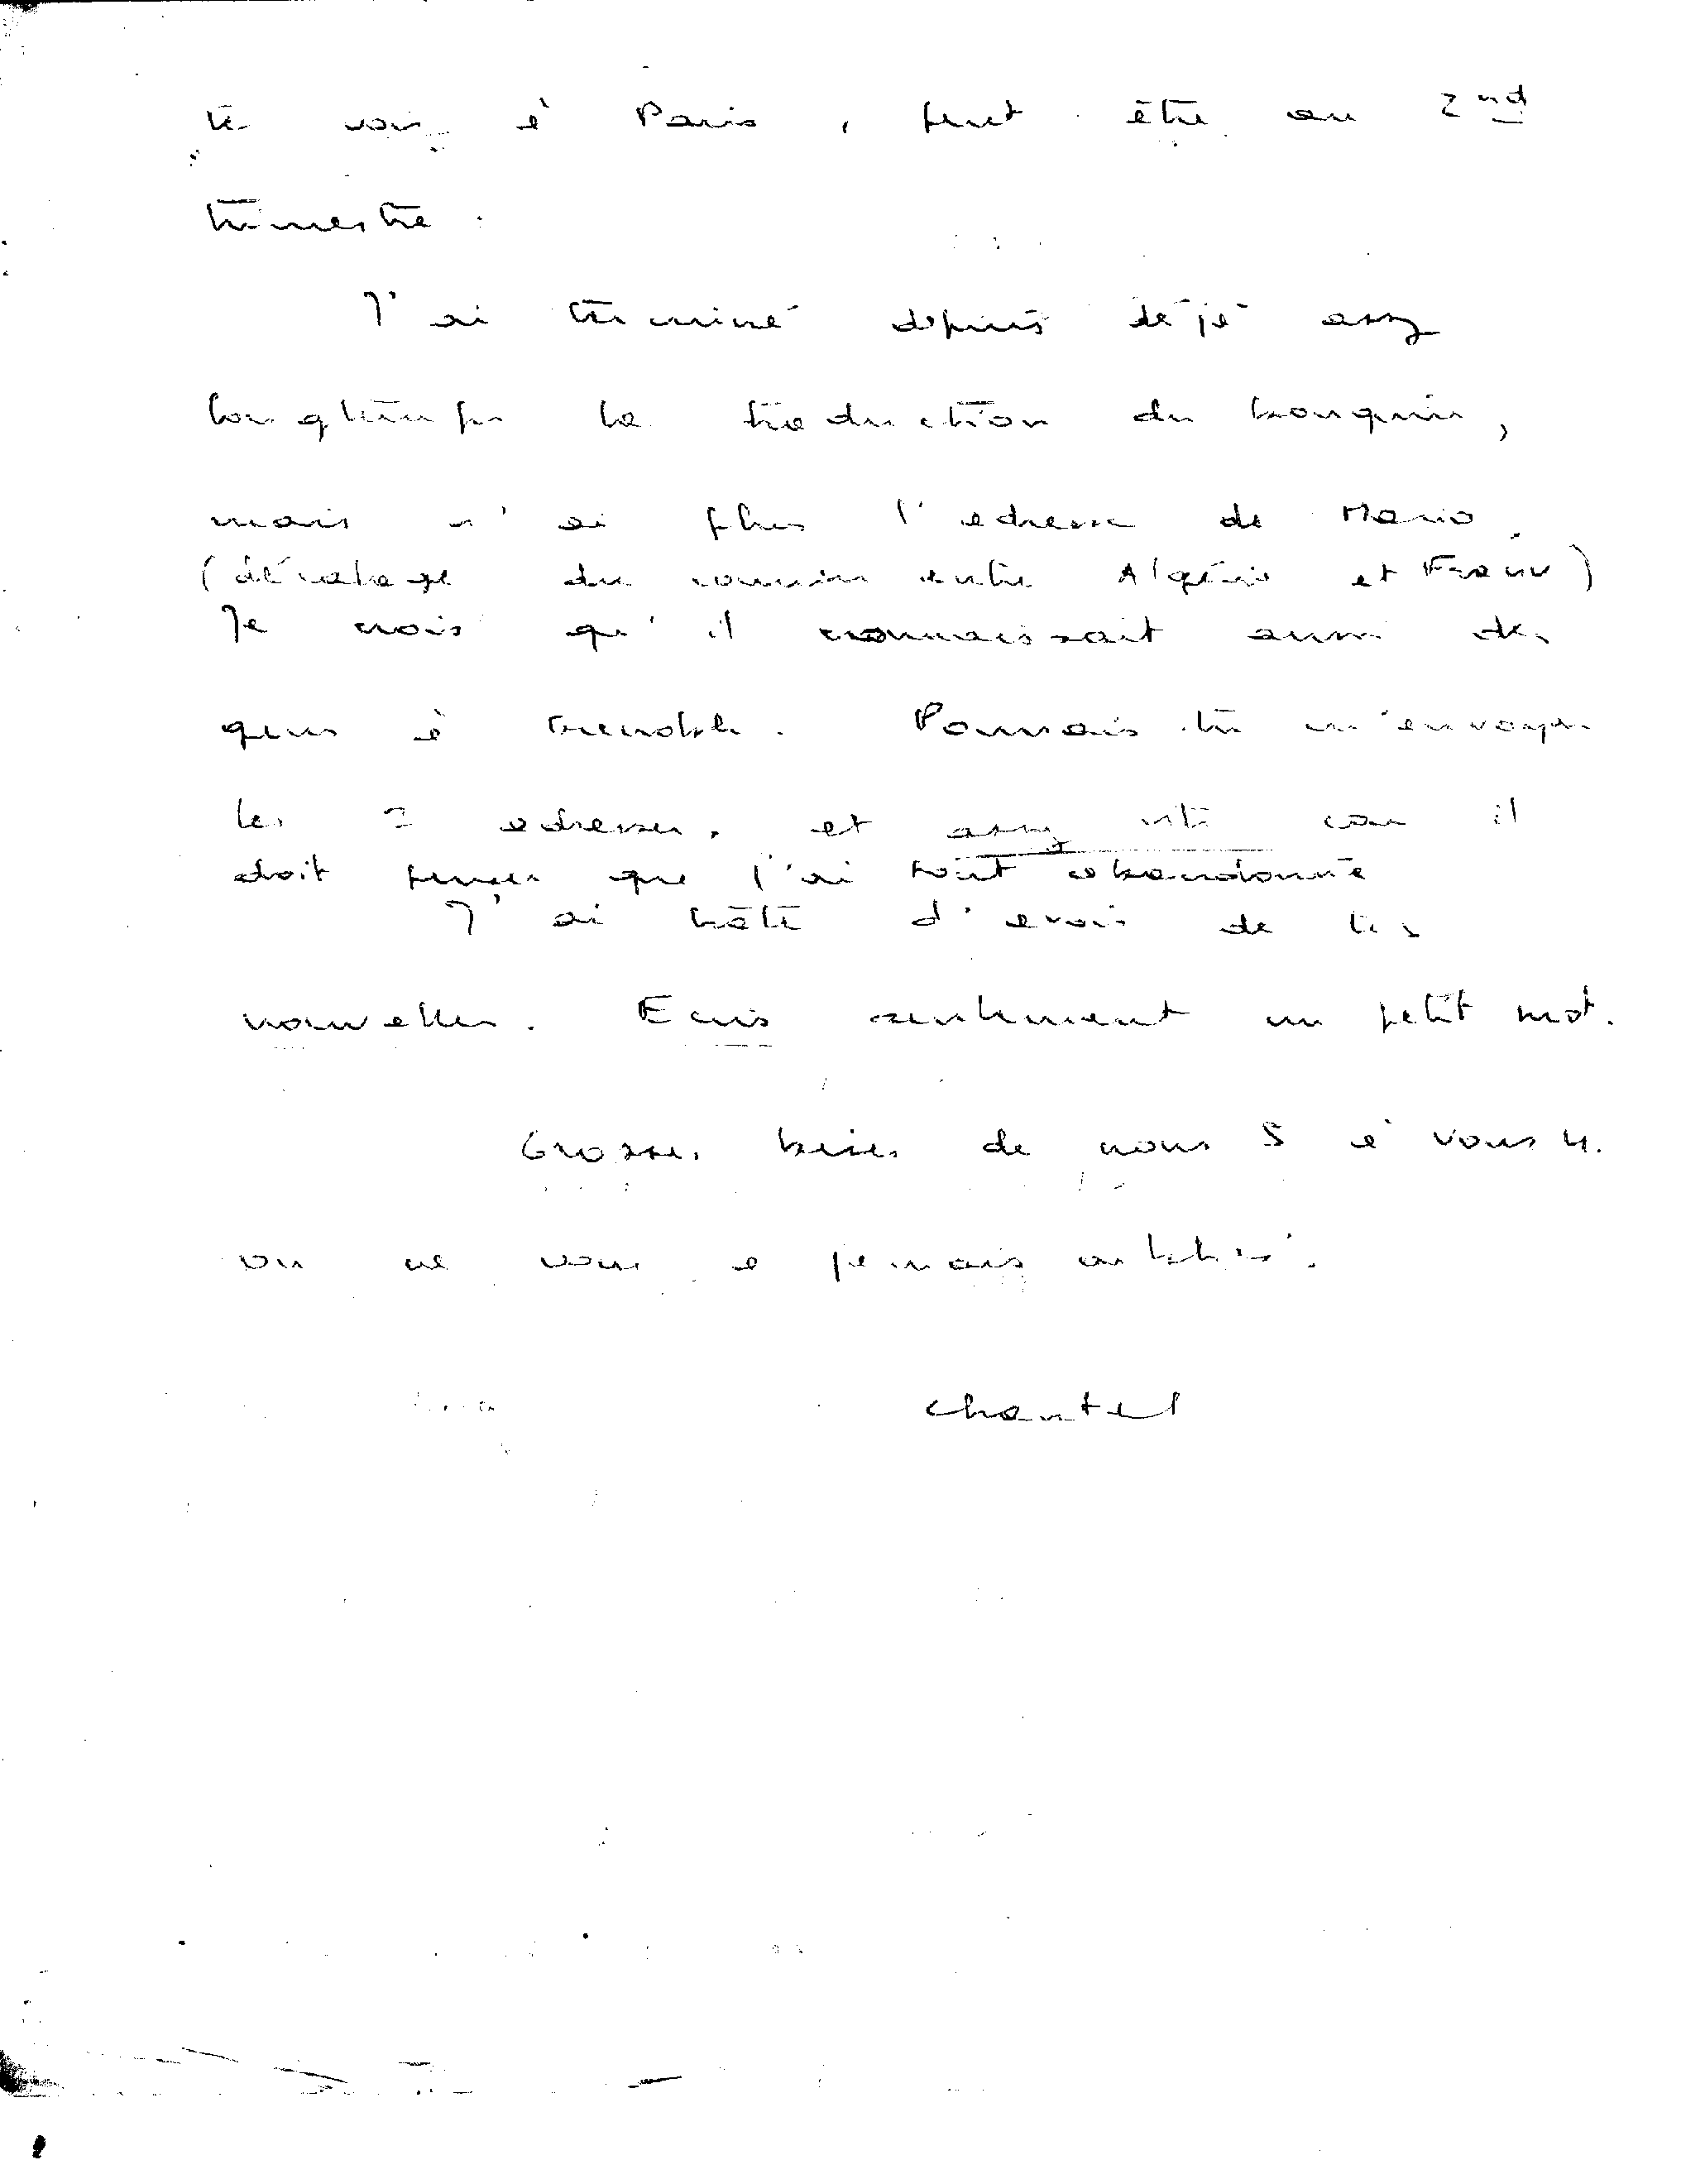 te voir à Paris, peut être au 2nd
trimestre.
J'ai terminé depuis déjà assez
longtemps la traduction du bouquin,
mais n'ai plus l'adresse de Mario.
(décalage du courrier entre Algérie et France)
Je crois qu'il connaissait aussi des
gens à Grenoble. Pourrais tu m'envoyer
les 2 adresses, et assez vite car il
doit penser que j'ai tout abandonné
J'ai hâte d'avoir de tes
nouvelles. Ecris seulement un petit mot.
Grosses bises de nous 5 à vous 4.
on ne vous a jamais oubliés.
Chantal